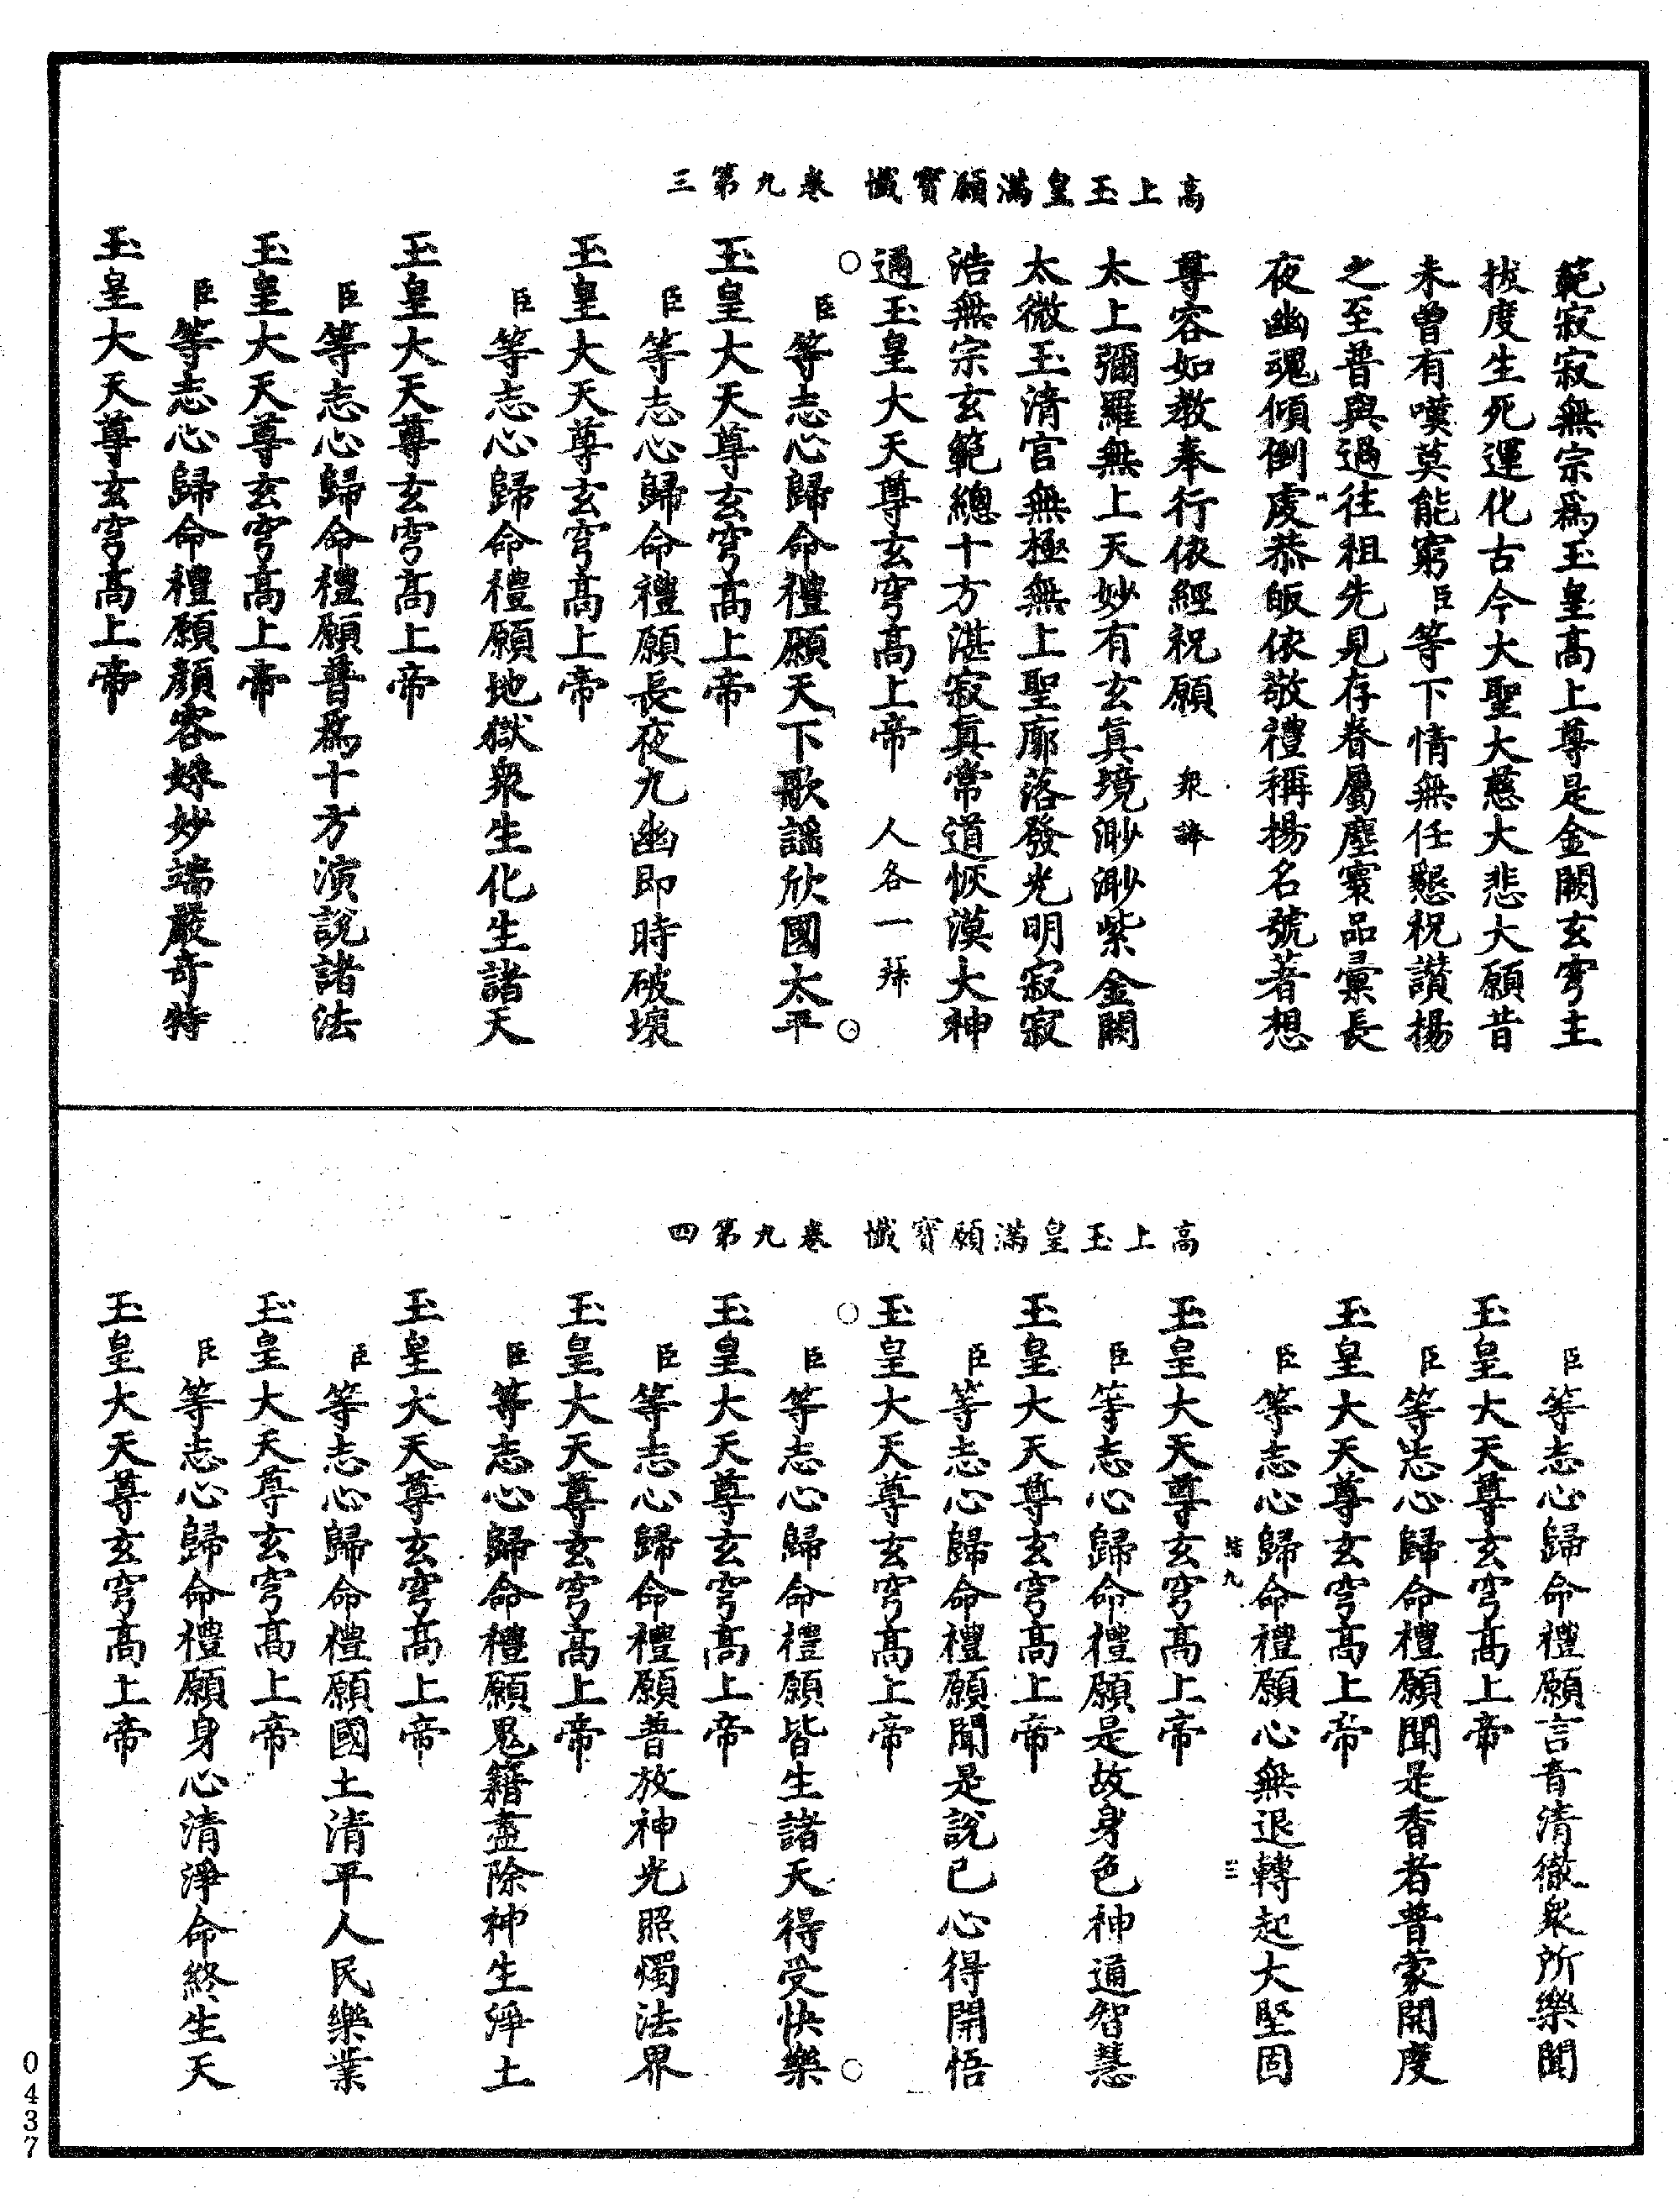 高上玉皇滿願寶懺　卷九第三
範寂寂無宗為玉皇高上尊是金闕玄穹主
拔度生死運化古今大聖大慈大悲大願昔
未曾有嘆莫能窮臣等下情無任懇祝讚揚
之至普與過往祖先見存眷屬塵寰品彙長
夜幽魂傾倒虔恭皈依敬禮稱揚名號著想
尊容如教奉行依經祝願　衆誦
太上彌羅無上天妙有玄真境渺渺紫金闕
太微玉清宮無極無上聖廓落發光明寂寂
浩無宗玄範總十方湛寂真常道恢漠大神
通玉皇大天尊玄穹高上帝　人各一拜
臣等志心歸命禮願天下歌謠欣國太平
玉皇大天尊玄穹高上帝
臣等志心歸命禮願長夜九幽即時破壞
玉皇大天尊玄穹高上帝
臣等志心歸命禮願地獄衆生化生諸天
玉皇大天尊玄穹高上帝
臣等志心歸命禮願普為十方演說諸法
玉皇大天尊玄穹高上帝
臣等志心歸命禮願顏容妙端嚴奇特
玉皇大天尊玄穹高上帝
高上玉皇滿願寶懺　卷九第四
臣等志心歸命禮願言音清徹衆所樂聞
玉皇大天尊玄穹高上帝
臣等志心歸命禮願聞是香者普蒙開度
玉皇大天尊玄穹高上帝
臣等志心歸命禮願心無退轉起大堅固
玉皇大天尊玄穹高上帝
臣等志心歸命禮願是故身色神通智慧
玉皇大天尊玄穹高上帝
臣等志心歸命禮願聞是說已心得開悟
玉皇大天尊玄穹高上帝
臣等志心歸命禮願皆生諸天得受快樂
玉皇大天尊玄穹高上帝
臣等志心歸命禮願普放神光照燭法界
玉皇大天尊玄穹高上帝
臣等志心歸命禮願鬼籍盡除神生淨土
玉皇大天尊玄穹高上帝
臣等志心歸命禮願國土清平人民樂業
玉皇大天尊玄穹高上帝
臣等志心歸命禮願身心清淨命終生天
玉皇大天尊玄穹高上帝
0437